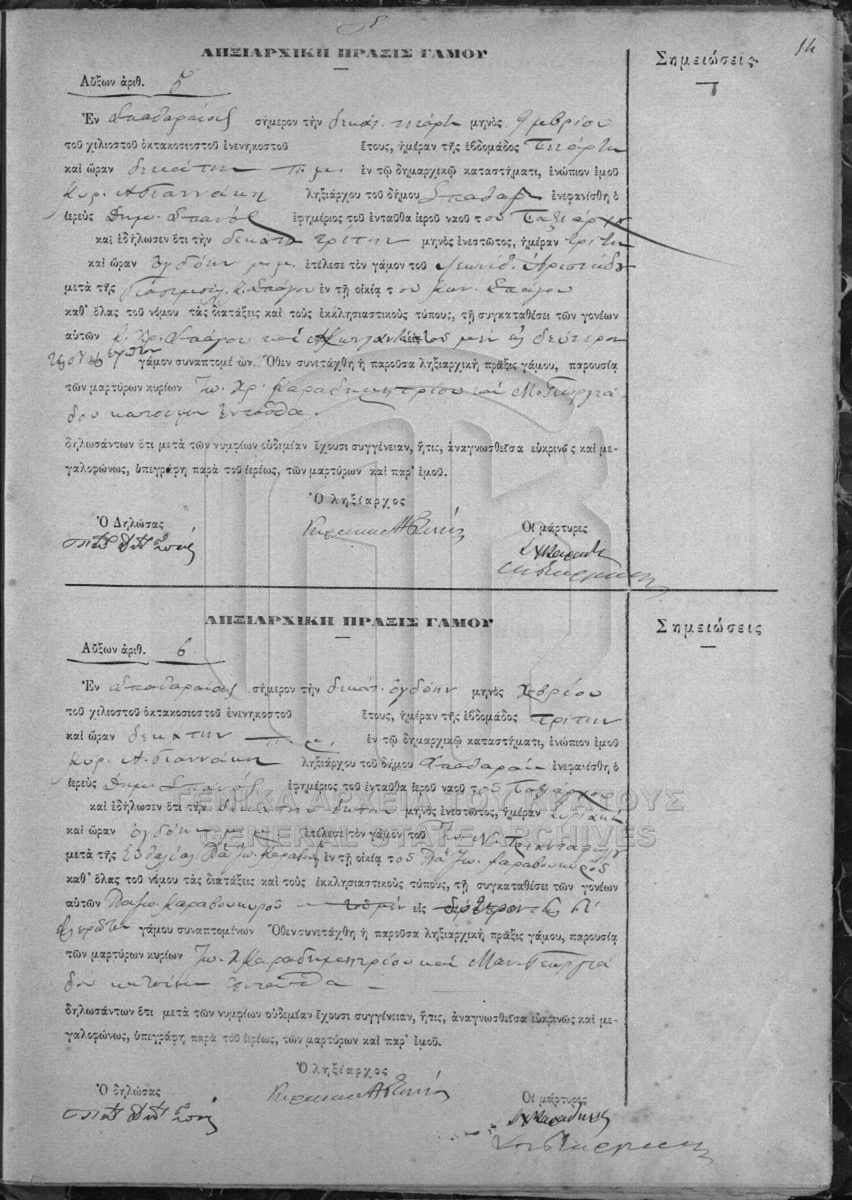 14
ΛΗΞΙΑΡΧΙΚΗ ΠΡΑΞΙΣ ΓΑΜΟΥ
Σημειώσεις
Αὔξων ἀριθ. 5
Ἐν Σπαθαραίοις σήμερον τὴν δεκάτ. τετάρτ. μηνὸς 9μβρίου
τοῦ χιλιοστοῦ ὀκτακοσιοστοῦ ἐνενηκοστοῦ ἔτους, ἡμέραν τῆς ἑβδομάδος Τετάρτη
καὶ ὥραν δεκάτην π.μ. ἐν τῷ δημαρχικῷ καταστήματι, ἐνώπιον ἐμοῦ
Κυρ. ληξιάρχου τοῦ δήμου Σπαθαρ. ἐνεφανίσθη ὁ
ἱερεὺς Δημ. Σπανός ἐφημέριος τοῦ ἐνταῦθα ἱεροῦ ναοῦ τοῦ Ταξιάρχου
καὶ ἐδήλωσεν ὅτι τὴν δεκάτη τρίτην μηνὸς ἐνεστῶτος, ἡμέραν τρίτη
καὶ ὥραν ὀγδόην μ.μ. ἐτέλεσε τὸν γάμον τοῦ Λεωνίδ.
μετὰ τῆς ἐν τῇ οἰκίᾳ τοῦ
καθ᾽ ὅλας τοῦ νόμου τὰς διατάξεις καὶ τοὺς ἐκκλησιαστικοὺς τύπους, τῇ συγκαταθέσει τῶν γονέων
αὐτῶν τοῦ μὲν εἰς δεύτερον
γάμον συναπτομένων. Ὅθεν συνετάχθη ἡ παροῦσα ληξιαρχικὴ πρᾶξις γάμου, παρουσίᾳ
τῶν μαρτύρων κυρίων Ἰω. Χρ. Καραδημητρίου καὶ Μ. Γεωργιά
δου κατοίκων ἐνταῦθα.
δηλωσάντων ὅτι μετὰ τῶν νυμφίων οὐδεμίαν ἔχουσι συγγένειαν, ἥτις, ἀναγνωσθεῖσα εὐκρινῶς καὶ με-
γαλοφώνως, ὑπεγράφη παρὰ τοῦ ἱερέως, τῶν μαρτύρων καὶ παρ᾽ ἐμοῦ.
Ὁ ληξίαρχος
Ὁ Δηλώσας
Οἱ μάρτυρες
ΛΗΞΙΑΡΧΙΚΗ ΠΡΑΞΙΣ ΓΑΜΟΥ
Σημειώσεις
Αὔξων ἀριθ. 6
Ἐν Σπαθαραίοις σήμερον τὴν δεκάτ. ὀγδόην μηνὸς Χβρίου
τοῦ χιλιοστοῦ ὀκτακοσιοστοῦ ἐνενηκοστοῦ ἔτους, ἡμέραν τῆς ἑβδομάδος τρίτην
καὶ ὥραν δεκάτην π.μ. ἐν τῷ δημαρχικῷ καταστήματι, ἐνώπιον ἐμοῦ
Κυρ. ληξιάρχου τοῦ δήμου Σπαθαραί. ἐνεφανίσθη ὁ
ἱερεὺς Δημ. Σπανός ἐφημέριος τοῦ ἐνταῦθα ἱεροῦ ναοῦ τοῦ Ταξιάρχου
καὶ ἐδήλωσεν ὅτι τὴν δεκάτην ἕκτην μηνὸς ἐνεστῶτος, ἡμέραν κυριακὴ
ΓΕΝΙΚΑ ΑΡΧΕΙΑ ΤΟΥ ΚΡΑΤΟΥΣ
GENERAL STATE ARCHIVES
καὶ ὥραν ὀγδόην μ.μ. ἐτέλεσε τὸν γάμον τοῦ Ἰω. Ν. Τριανταφύλλου
μετὰ τῆς ἐν τῇ οἰκίᾳ τοῦ Καραβοκυροῦ
καθ᾽ ὅλας τοῦ νόμου τὰς διατάξεις καὶ τοὺς ἐκκλησιαστικοὺς τύπους, τῇ συγκαταθέσει τῶν γονέων
αὐτῶν Καραβοκυροῦ τοῦ μὲν εἰς δεύτερον
γάμου συναπτομένων Ὅθεν συνετάχθη ἡ παροῦσα ληξιαρχικὴ πρᾶξις γάμου, παρουσίᾳ
τῶν μαρτύρων κυρίων Ἰω. Χ Καραδημητρίου καὶ Μαν. Γεωργιά
δου κατοίκων ἐνταῦθα
δηλωσάντων ὅτι μετὰ τῶν νυμφίων οὐδεμίαν ἔχουσι συγγένειαν, ἥτις, ἀναγνωσθεῖσα εὐκρινῶς καὶ με-
γαλοφώνως, ὑπεγράφη παρὰ τοῦ ἱερέως, τῶν μαρτύρων καὶ παρ᾽ ἐμοῦ.
Ὁ ληξίαρχος
Ὁ δηλώσας
Οἱ μάρτυρες